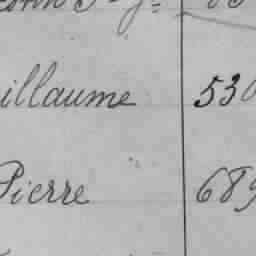 illaume 530
Pierre 689